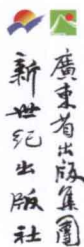 廣東省出版集團
新世纪出版社